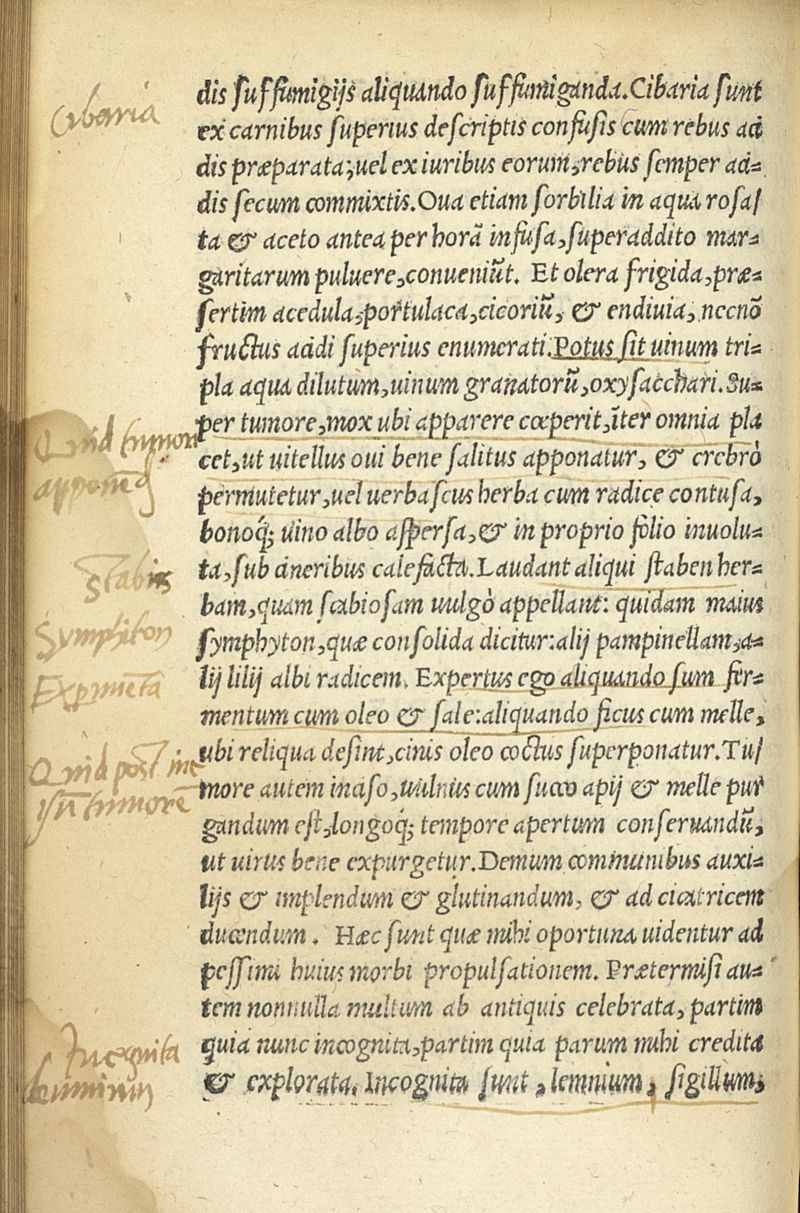 dis suffumigijs aliquando suffumiganda. Cibaria sunt
Cibaria
ex carnibus superius descriptis confusis cum rebus aci
dis præparata; uel ex iuribus eorum, rebus semper aci-
dis secum commixtis. Oua etiam sorbilia in aqua rosa/
ta & aceto antea per horā infusa, superaddito mar-
garitarum puluere, conueniūt. Et olera frigida, præ-
sertim acedula, portulaca, cicoriū, & endiuia, necnō
fructus acidi superius enumerati. Potus sit uinum tri-
pla aqua dilutum, uinum granatorū, oxysacchari. Su-
per tumore, mox ubi apparere cœperit, īter omnia pla
Quid tumori
cet, ut uitellus oui bene salitus apponatur, & crebrò
permutetur, uel uerbascus herba cum radice contusa,
bonoq; uino albo aspersa, & in proprio folio inuolu-
ta, sub cineribus calefacta. Laudant aliqui staben her-
bam, quam scabiosam uulgò appellant: quidam maius
symphyton, quæ consolida dicitur: alij pampinellam, a-
Symphiton
lij lilij albi radicem. Expertus ego aliquando sum fer-
Exprimēta
mentum cum oleo & sale: aliquando ficus cum melle,
ubi reliqua desint, cinis oleo coctus superponatur. Tu/
Quid post inc
more autem inciso, uulnus cum succo apij & melle pur
isū tumorē
gandum est, longoq; tempore apertum conseruandū,
ut uirus bene expurgetur. Demum communibus auxi-
lijs & implendum & glutinandum, & ad cicatricem
ducendum. Hæc sunt quæ mihi oportuna uidentur ad
pessimi huius morbi propulsationem. Prætermisi au-
tem nonnulla multum ab antiquis celebrata, partim
quia nunc incognita, partim quia parum mihi credita
Incognita
& explorata. Incognita sunt, lemnium, sigillum,